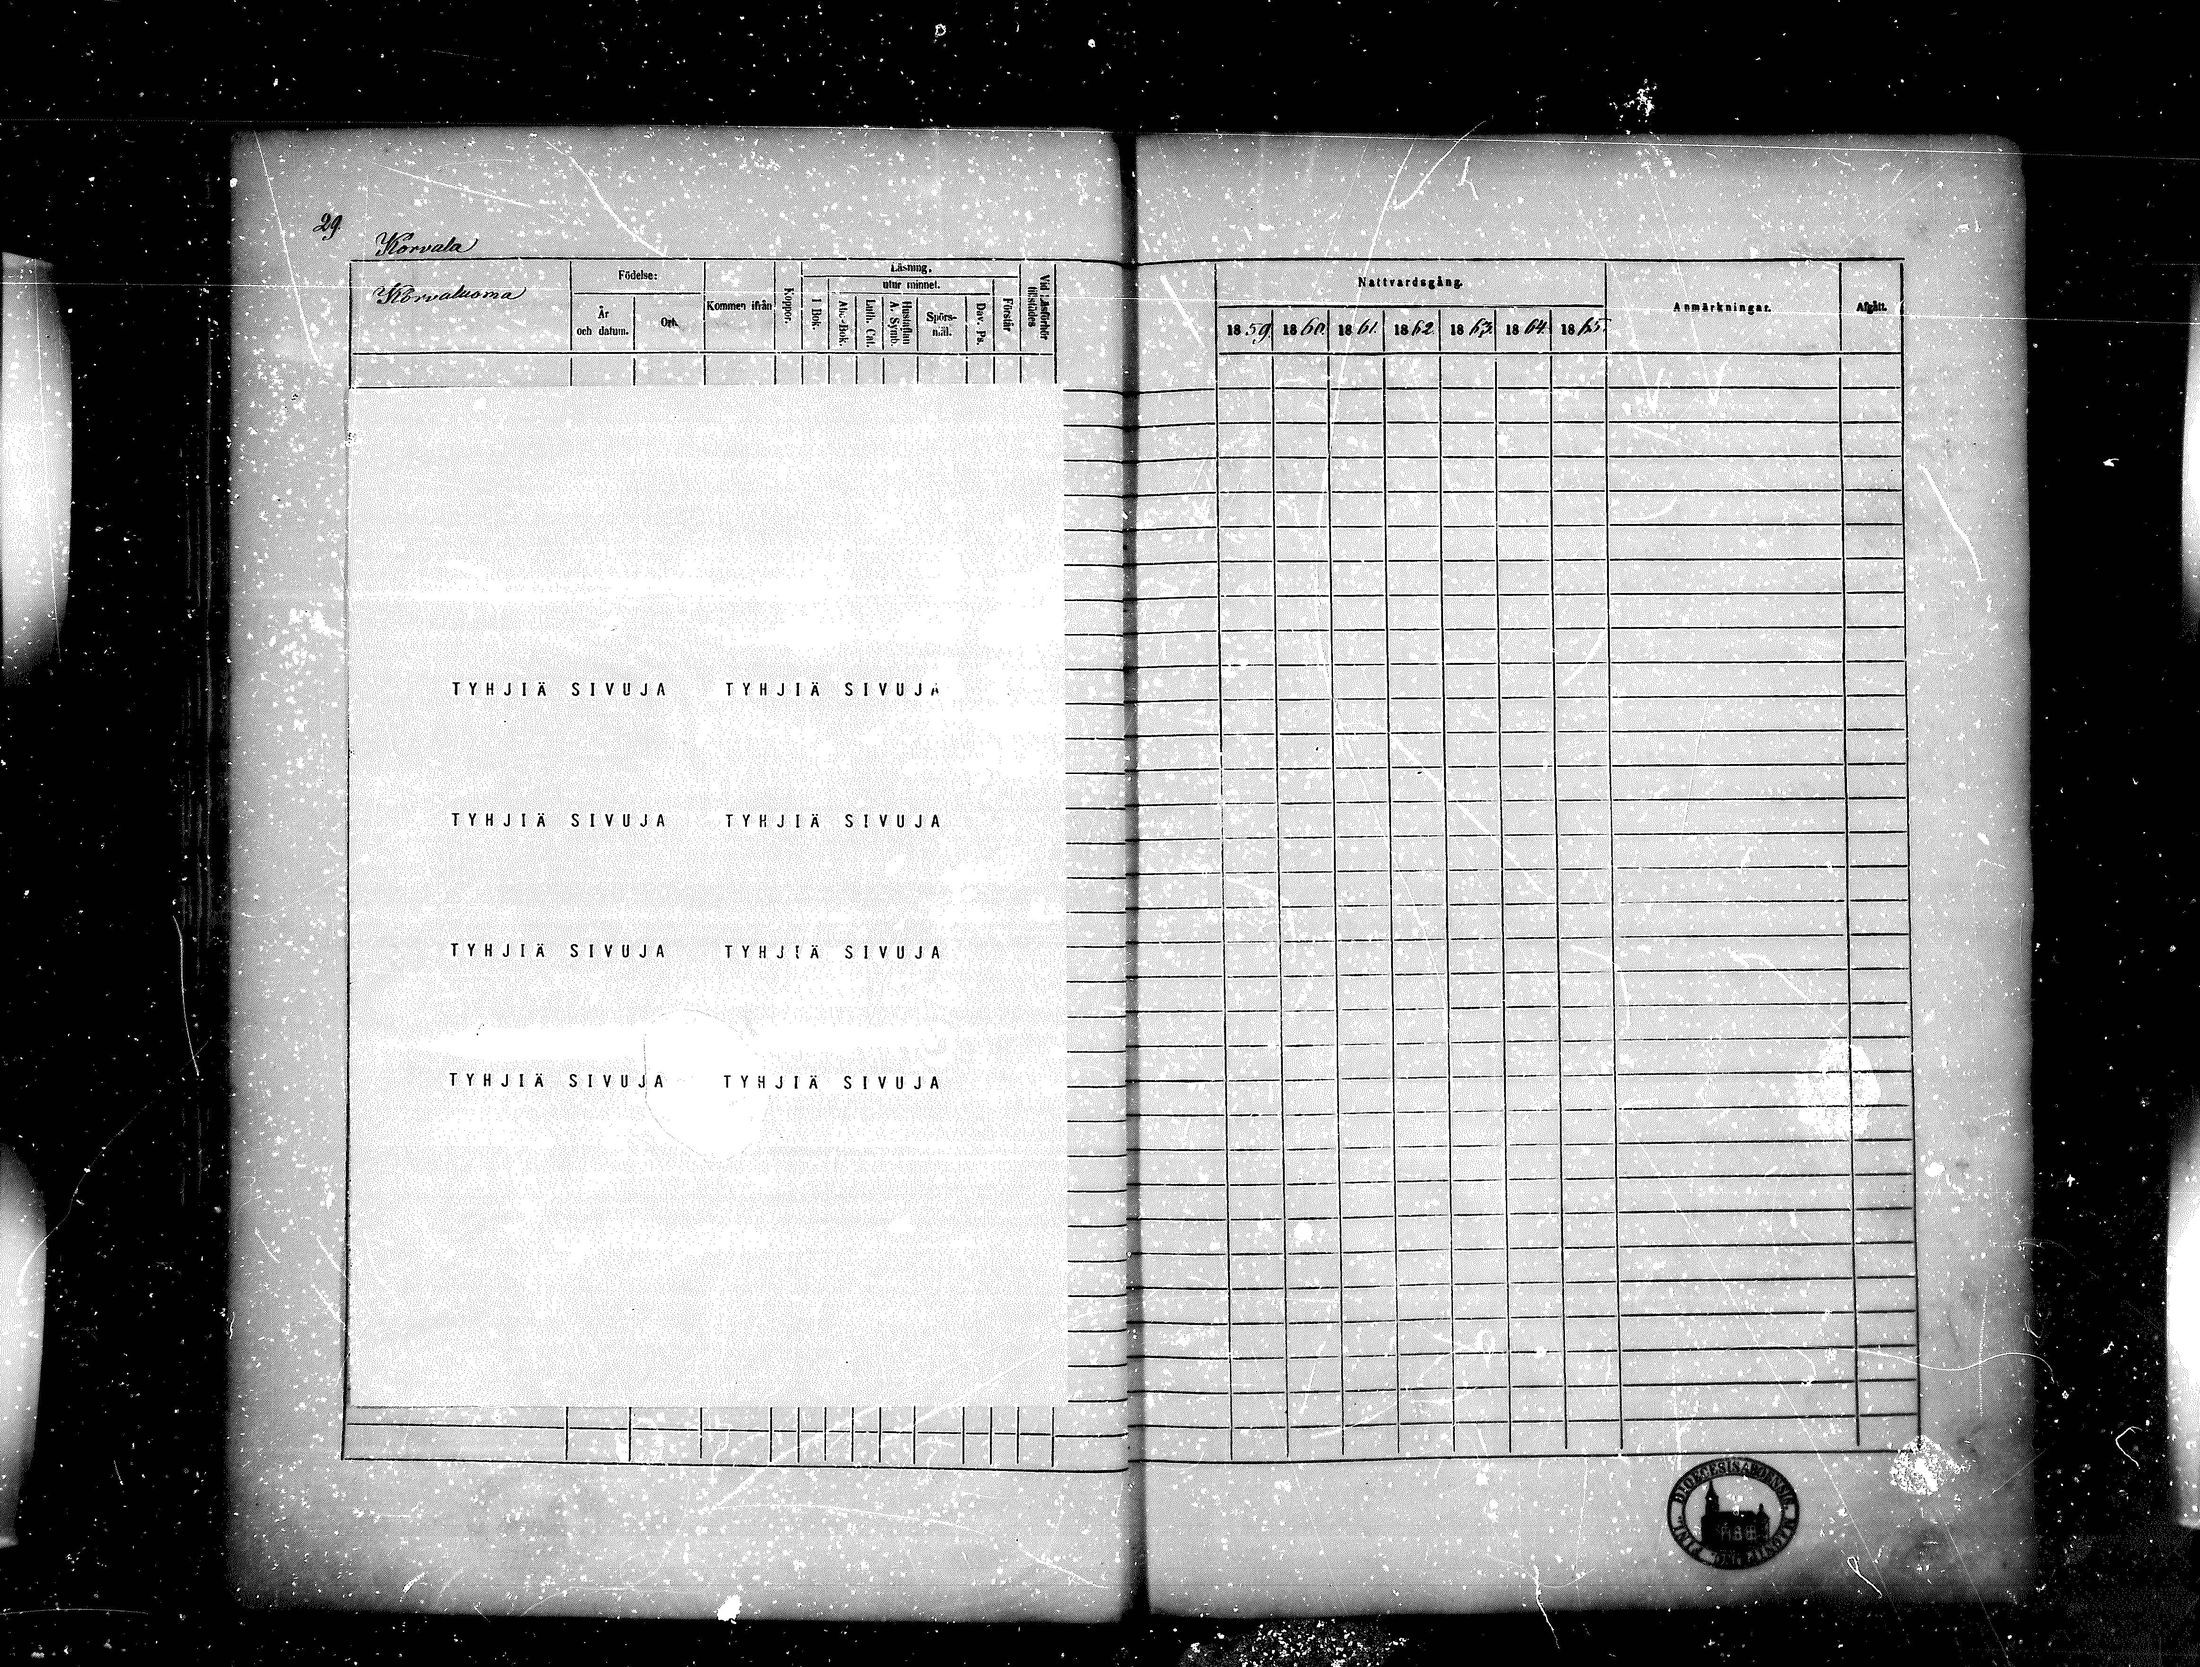 29.
Korvala
Korvaluoma
Födelse:
År och datum.
Ort.
Kommen ifrån
Koppor.
Läsning,
utur minnet.
I Bok.
Abc-Bok.
Luth. Cat.
Hustaflan A. Symb.
Spörs-mål.
Dav. Ps.
Förstår
Vid Läsförhör tillstädes
Nattvardsgång.
1859. 1860. 1861. 1862. 1863. 1864. 1865.
Anmärkningar.
Afgått.
TYHJIÄ SIVUJA TYHJIÄ SIVUJA
TYHJIÄ SIVUJA TYHJIÄ SIVUJA
TYHJIÄ SIVUJA TYHJIÄ SIVUJA
TYHJIÄ SIVUJA TYHJIÄ SIVUJA
DIOECESIS ABOENSIS